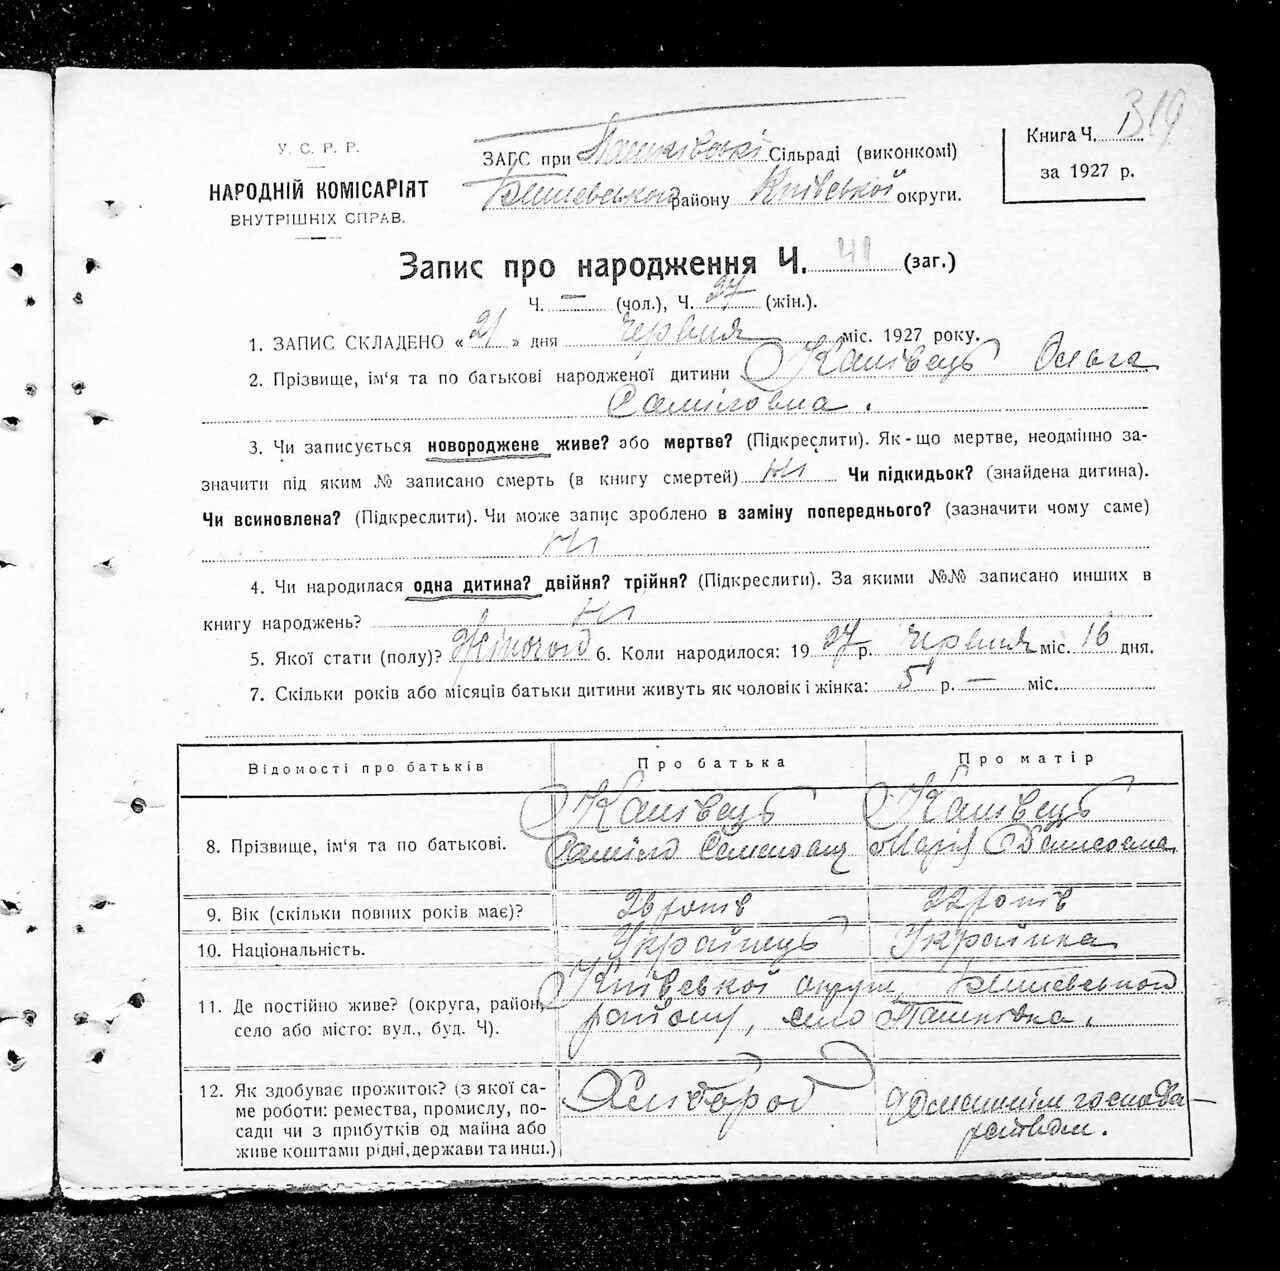 319
У. С. Р. Р.
НАРОДНІЙ КОМІСАРІЯТ
ВНУТРІШНІХ СПРАВ.
ЗАГС при Пашківські Сільраді (виконкомі)
Бишевського району Київської округи.
Книга Ч.
за 1927 р.
Запис про народження Ч. 41 (заг.)
Ч. — (чол.), Ч. 27 (жін.).
1. ЗАПИС СКЛАДЕНО « 21 » дня червня міс. 1927 року.
2. Прізвище, ім'я та по батькові народженої дитини Канівець Ольга
Саміловна.
3. Чи записується новороджене живе? або мертве? (Підкреслити). Як-що мертве, неодмінно за-
значити під яким № записано смерть (в книгу смертей) Ні Чи підкидьок? (знайдена дитина).
Чи всиновлена? (Підкреслити). Чи може запис зроблено в заміну попереднього? (зазначити чому саме)
Ні
4. Чи народилася одна дитина? двійня? трійня? (Підкреслити). За якими №№ записано инших в
книгу народжень? Ні
5. Якої стати (полу)? Жіночої 6. Коли народилося: 19 27 р. червня міс. 16 дня.
7. Скільки років або місяців батьки дитини живуть як чоловік і жінка: 5 р. — міс.
Відомості про батьків
Про батька
Про матір
8. Прізвище, ім'я та по батькові.
Канівець
Саміло Семенович
Канівець
Марія Денисовна
9. Вік (скільки повних років має)?
26 років
22 років
10. Національність.
Українець
Українка
11. Де постійно живе? (округа, район,
село або місто: вул., буд. Ч).
Київської округи, Бишевського
району, село Пашківка.
12. Як здобуває прожиток? (з якої са-
ме роботи: ремества, промислу, по-
сади чи з прибутків од майна або
живе коштами рідні, держави та инш.)
Хлібороб
Домашнім господа-
рством.